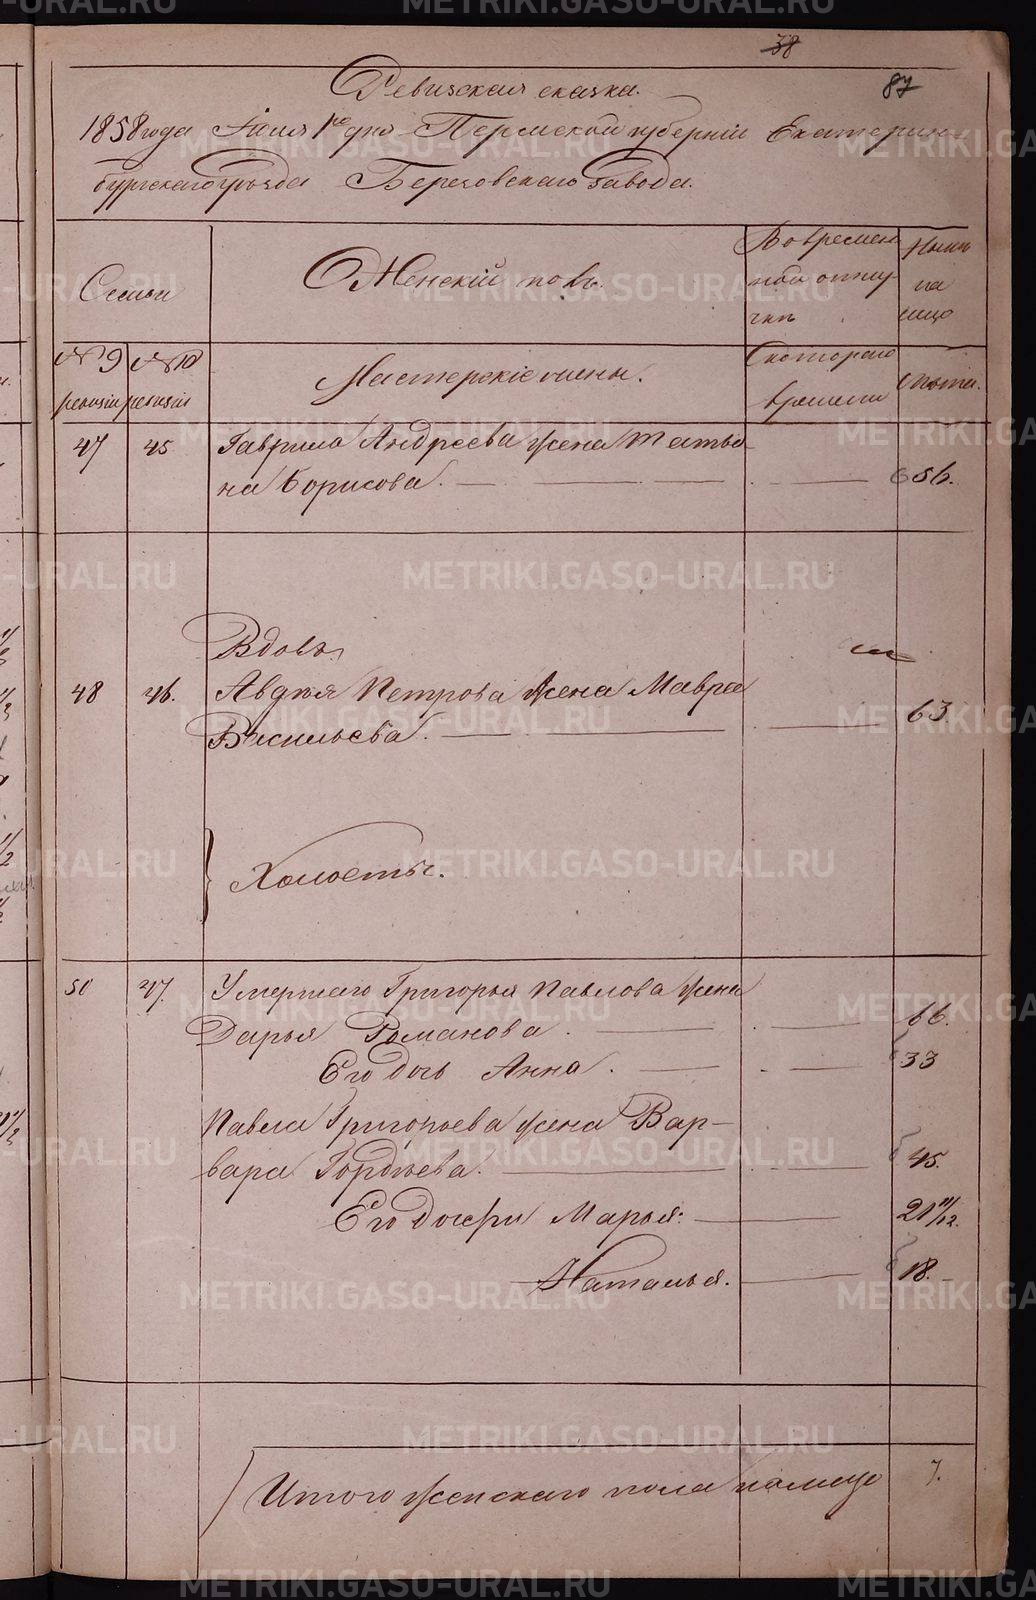 38
87
Ревизская сказка.
1858 года Іюня 1го дня Пермской губерніи Екатерин-
бургскаго уѣзда Березовскаго завода.
Семьи
Женскій полъ.
Во времен
ной отлу-
чкѣ
Нынѣ
на
лицо
№ 9
ревизіи
№ 10
ревизіи
Мастерскіе
Съ котораго
времени
Лѣта.
47 45 Гаврила Андреева жена Татья-
на Борисова. 56.
Вдовъ.
48 46. Авдѣя Петрова жена Мавра
Васильева. 63
Холостыъ.
50 47. Умершаго Григорья Павлова жена
Дарья Романова. 66.
Его дочь Анна. 33
Павла Григорьева жена Вар-
вара Гордѣева. 45.
Его дочери Марья. 21 11/12.
Наталья. 18.
Итого женскаго пола налицо 7.
METRIKI.GASO-URAL.RU